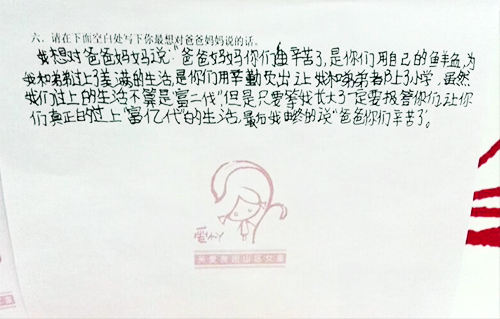 六、请在下面空白处写下你最想对爸爸妈妈说的话。
我想对爸爸妈妈说:“爸爸妈妈你们辛苦了,是你们用自己的鱼鲜血,为
我和弟弟过上了美满的生活,是你们用辛勤付出,让我和弟弟都上了小学,虽然
我们过上的生活不算是“富二代”,但是只要等我长大了一定要报答你们,让你
们真正的过上“富亿代”的生活,最后我由终的说“爸爸你们辛苦了”。
爱小丫
关爱贫困山区女童